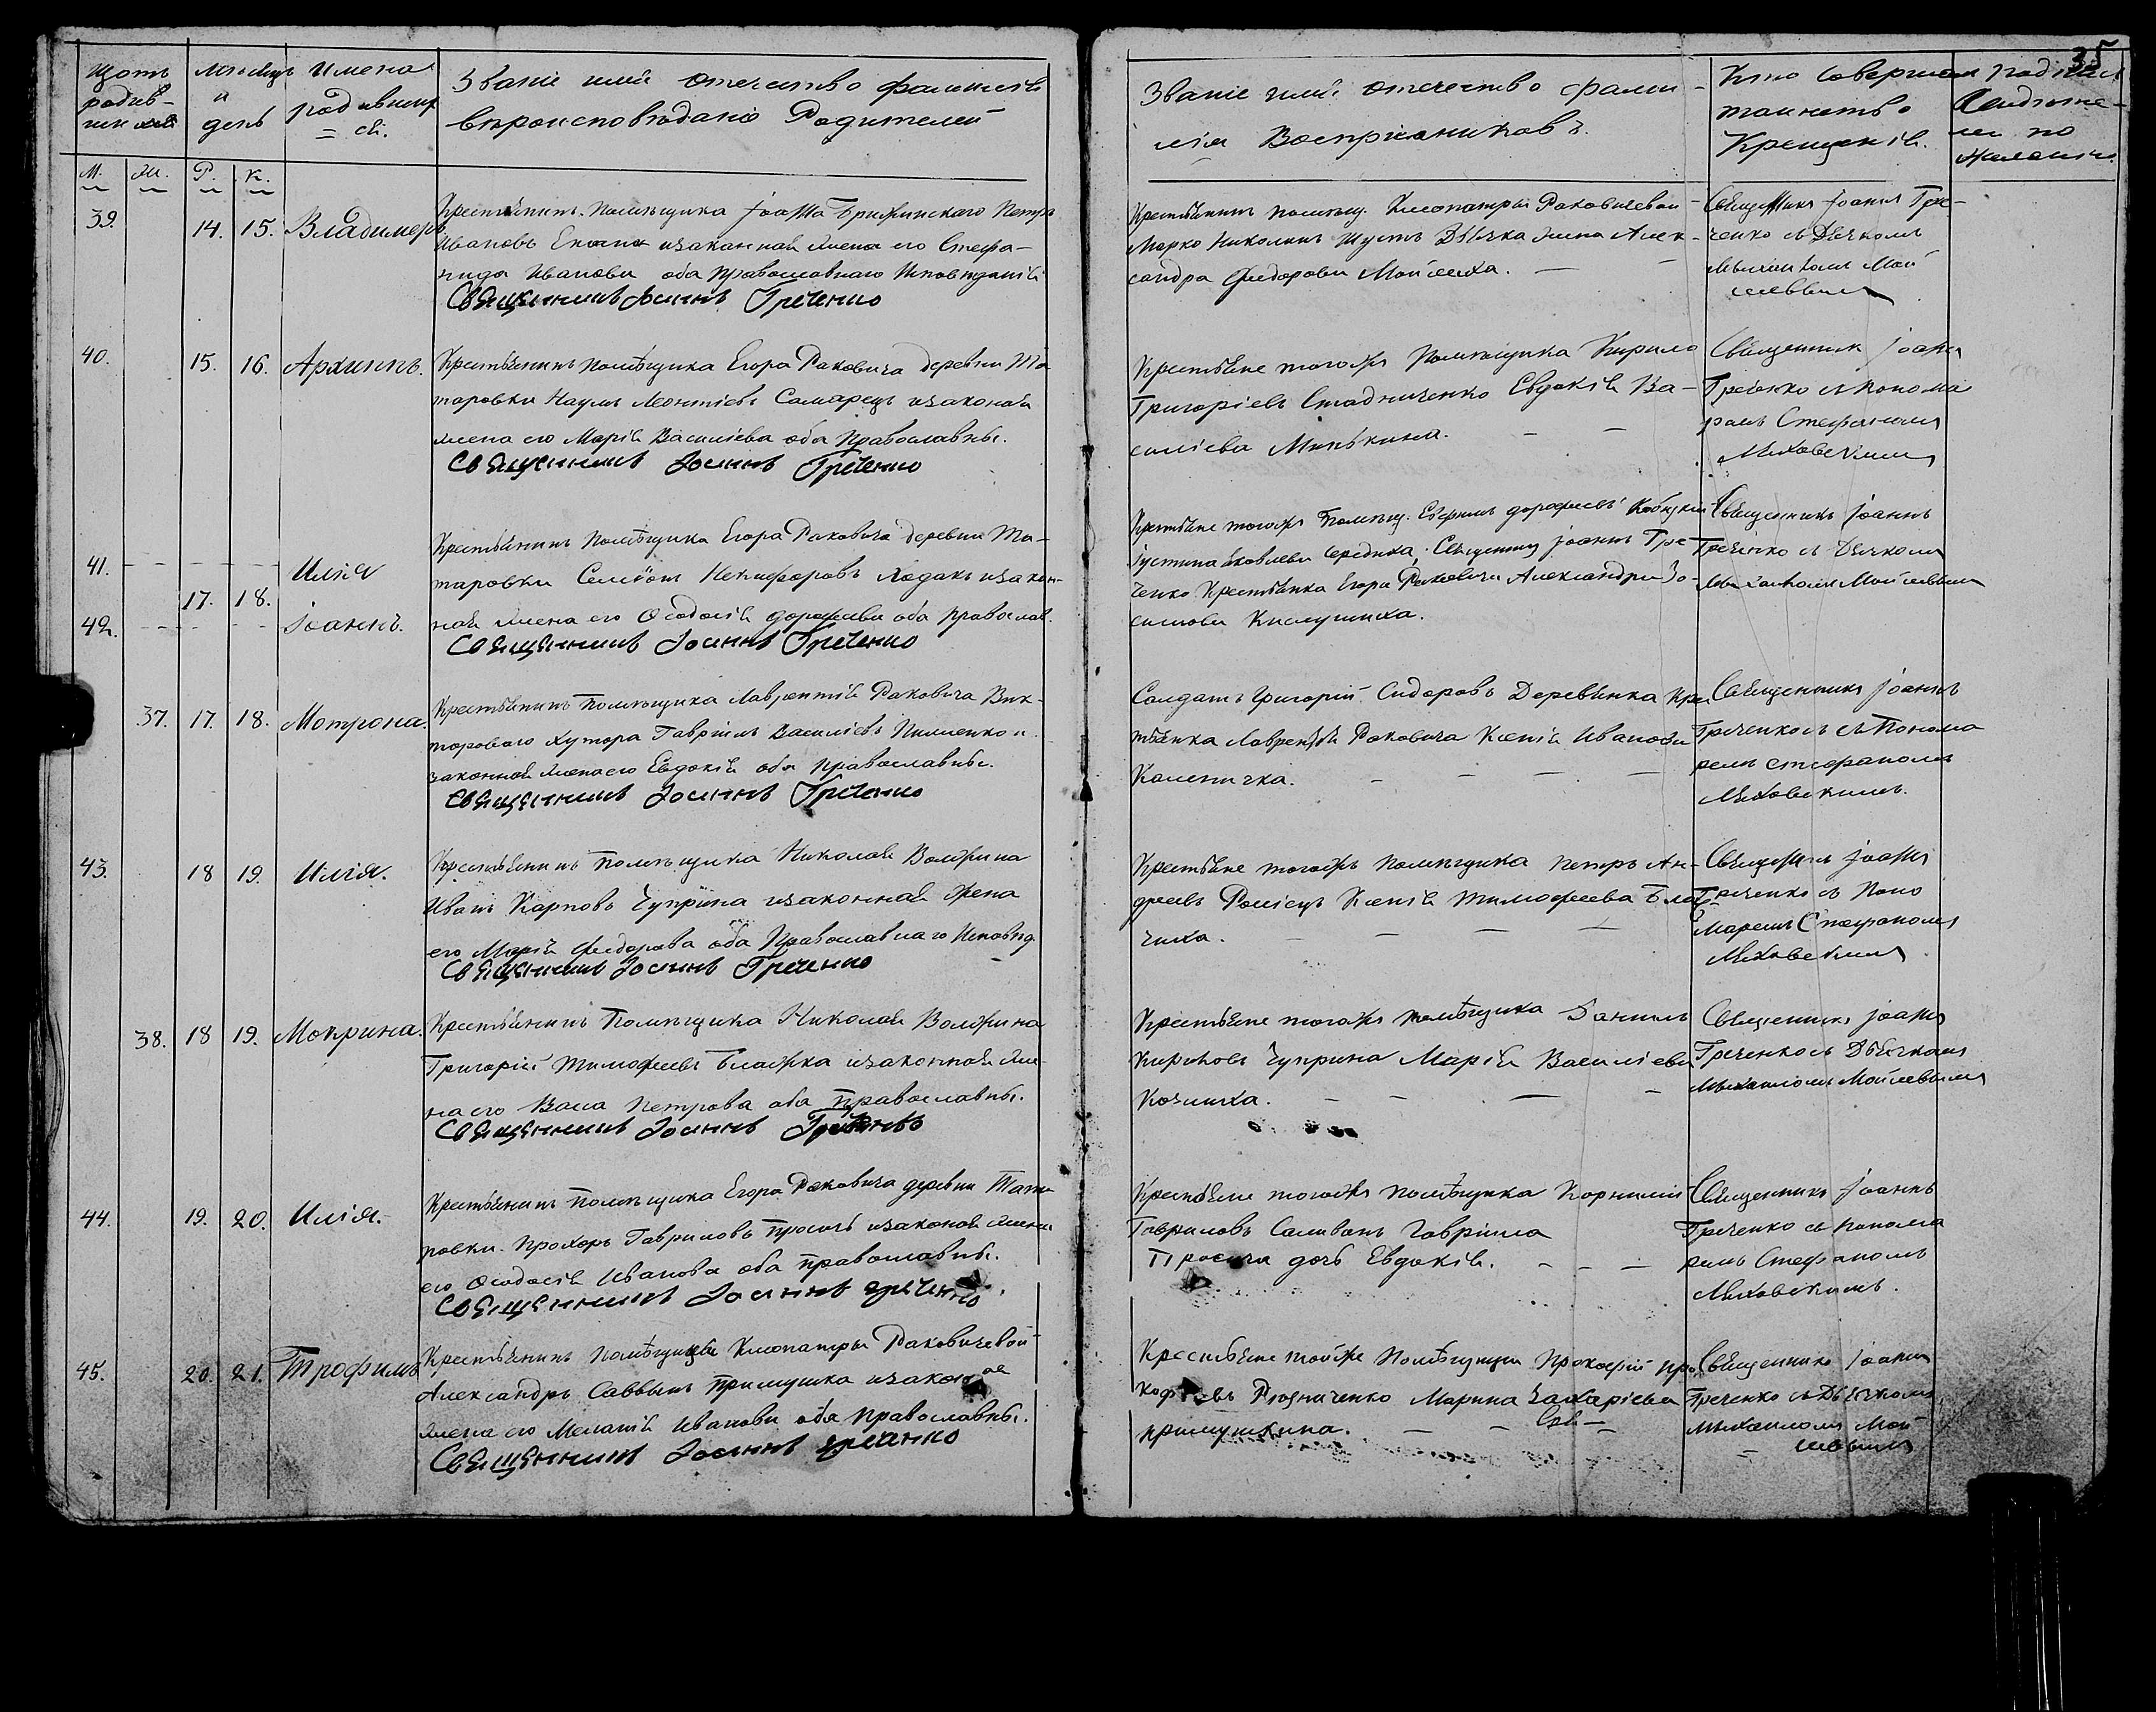 35
Щотъ родив- шихся
Мѣсяцъ и день
Имена родивших = ся.
Званіе имя отечество фамилія
вѣроисповѣданіе Родителей
Званіе имя отечество фами-
лія Воспріемниковъ.
Кто совершал таинство Крещенія.
по желанію
М. Ж. Р. К.
39. 14. 15. Владимеръ
Крестьянинъ Помѣщика Іоанна Петръ
Ивановъ изаконная жена его Стефа-
нида Иванова оба православнаго Исповѣданія
Священникъ Іоаннъ Греченко
Крестьянинъ помѣщ. Клеопатры Раковичевой
Марко Николаевъ Шустъ Дьячка жена Алек-
сандра Федорова Мойсеиха.
Священникъ Іоаннъ Гре-
ченко съ Дьячкомъ
Михаиломъ Мой
сеевымъ
40. 15. 16. Архиппъ.
Крестьянинъ помѣщика Егора Раковича деревни Та
таровки Наумъ Леонтіевъ Самарецъ изаконая
жена его Марія Василіева оба православны.
Священникъ Іоаннъ Греченко
Крестьяне тогожъ Помѣщика Кирило
Григоріевъ Стадниченко Евдокія Ва-
силіева Минькина.
Священник Іоаннъ
Греченко съ понома
ремъ Стефаномъ
Маховскимъ
41. Илія
17. 18.
42. Іоаннъ.
Крестьянинъ Помѣщика Егора Раковича деревни Та-
таровки Никифоровъ изакон-
ная жена его Феодосія Дорофеева оба православ.
Священникъ Іоаннъ Греченко
Крестьяне тогожъ Помѣщ. Дорофеевъ
Іустина Яковлева Середиха. Священникъ Іоаннъ Гре-
ченко Крестьянка Егора Раковича Александра Зо-
симова
Священникъ Іоаннъ
Греченко съ Дьячкомъ
Михаиломъ Мойсеевымъ
37. 17. 18. Мотрона.
Крестьянинъ Помѣщика Лаврентія Раковича Вик-
торового хутора Гавріилъ Василіевъ Пилипенко и
законная жена его Евдокія оба православны.
Священникъ Іоаннъ Греченко
Солдатъ Григорій Сидоровъ Деревянка Кре
стьянка Лаврентія Раковича Ксенія Иванова
Калиничка.
Священникъ Іоаннъ
Греченко съ Понома
ремъ Стефаномъ
Маховскимъ.
43. 18 19. Илія.
Крестьянинъ помѣщика Николая Волжина
Иванъ Карповъ Чуприна изаконная жена
его Марія Федорова оба Православнаго Исповѣд.
Священникъ Іоаннъ Греченко
Крестьяне тогожъ помѣщика Петръ Ан-
дреевъ Ксенія Тимофеева Блаж
чиха.
Священникъ Іоаннъ
Греченко съ Поно
маремъ Стефаномъ
Маховскимъ
38. 18 19. Мокрина.
Крестьянинъ Помѣщика Николая Волжина
Григорій Тимофеевъ Блажка изаконная же-
на его Васа Петрова оба православны.
Священникъ Іоаннъ Греченко
Крестьяне тогожъ помѣщика Данилъ
Кириковъ Чуприна Марія Василіева
Козлиха.
Священникъ Іоаннъ
Греченко съ Дьячкомъ
Михаиломъ Мойсеевымъ
44. 19. 20. Илія.
Крестьянинъ помѣщика Егора Раковича деревни Тата
ровки. Прохоръ Гавриловъ Просячъ изаконая жена
его Феодосія Иванова оба православны.
Священникъ Іоаннъ Греченко.
Крестьяне тогожъ помѣщика Корнилій
Гавриловъ Саливонъ Гавріила
Просяча дочь Евдокія.
Священникъ Іоаннъ
Греченко съ понома
ремъ Стефаномъ
Маховскимъ.
45. 20. 21. Трофимъ
Крестьянинъ помѣщицы Клеопатры Раковичевой
Александръ Саввинъ Примушка изаконая
жена его Меланія Иванова оба православны.
Священникъ Іоаннъ Греченко
Крестьяне тойже Помѣщицы Прокофій Про
кофіевъ Рудниченко Марина Захаріева
Примушкина.
Священникъ Іоаннъ
Греченко съ Дьячкомъ
Михаиломъ Мой
сеевымъ